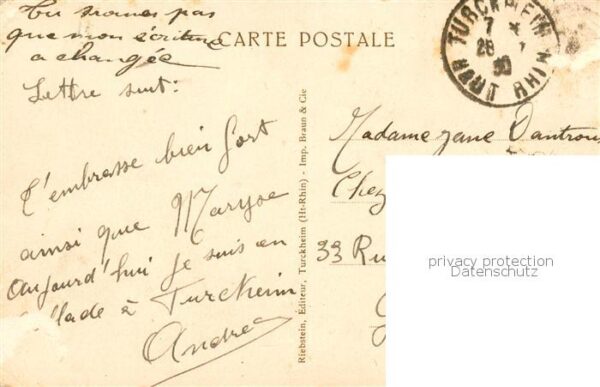 Tu trouves pas
que mon écriture
a changée
CARTE POSTALE
Lettre suit:
T'embrasse bien fort
ainsi que Maryse
aujourd'hui je suis en
ballade à Turckeim
André
Riebstein, Editeur, Turckheim (Ht-Rhin) - Imp. Braun & Cie
TURCKHEIM
7
28
30
HAUT RHIN
Madame Jane
Chez
33 Ru
privacy protection
Datenschutz